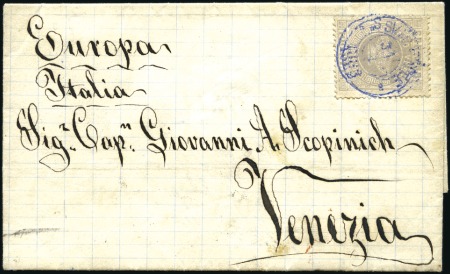 Europa
Italia
Sig.r Cap.n Giovanni A. Scopinich
Venezia